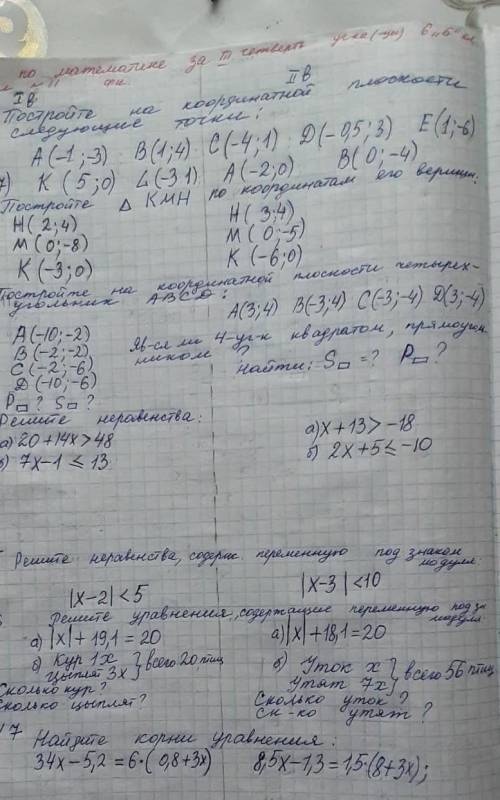 по математике за III четверть уч-ка (-цы) 6 "Б" кл.
I В. II В
Постройте на координатной плоскости
следующие точки:
A(-1;-3) B(1;4) C(-4;1) D(-0,5;3) E(1;-6)
K(5;0) L(-3 1) A(-2;0) B(0;-4)
Постройте △ КМН по координатам его вершин:
H(2;4) H(3;4)
M(0;-8) M(0;-5)
K(-3;0) K(-6;0)
Постройте на координатной плоскости четырех-
угольник ABCD:
A(3;4) B(-3;4) C(-3;-4) D(3;-4)
A(-10;-2) Яв-ся ли 4-уг-к квадратом, прямоуголь-
B(-2;-2) ником?
C(-2;-6) Найти: S▭=? P▭?
D(-10;-6)
P▭? S▭?
Решите неравенства:
а) 20+14x>48 а) x+13>-18
б) 7x-1≤13 б) 2x+5≤-10
Решите неравенства, содерж. переменную под знаком
модуля:
|x-2|<5 |x-3|<10
Решите уравнения, содержащие переменную под зн.
модуля
а) |x|+19,1=20 а) |x|+18,1=20
б) Кур 1x } всего 20 птиц б) Уток x } всего 56 птиц
Цыплят 3x Утят 7x
Сколько кур? Сколько уток?
Сколько цыплят? Ск-ко утят?
7 Найдите корни уравнения:
34x-5,2=6·(0,8+3x) 8,5x-1,3=1,5·(8+3x);